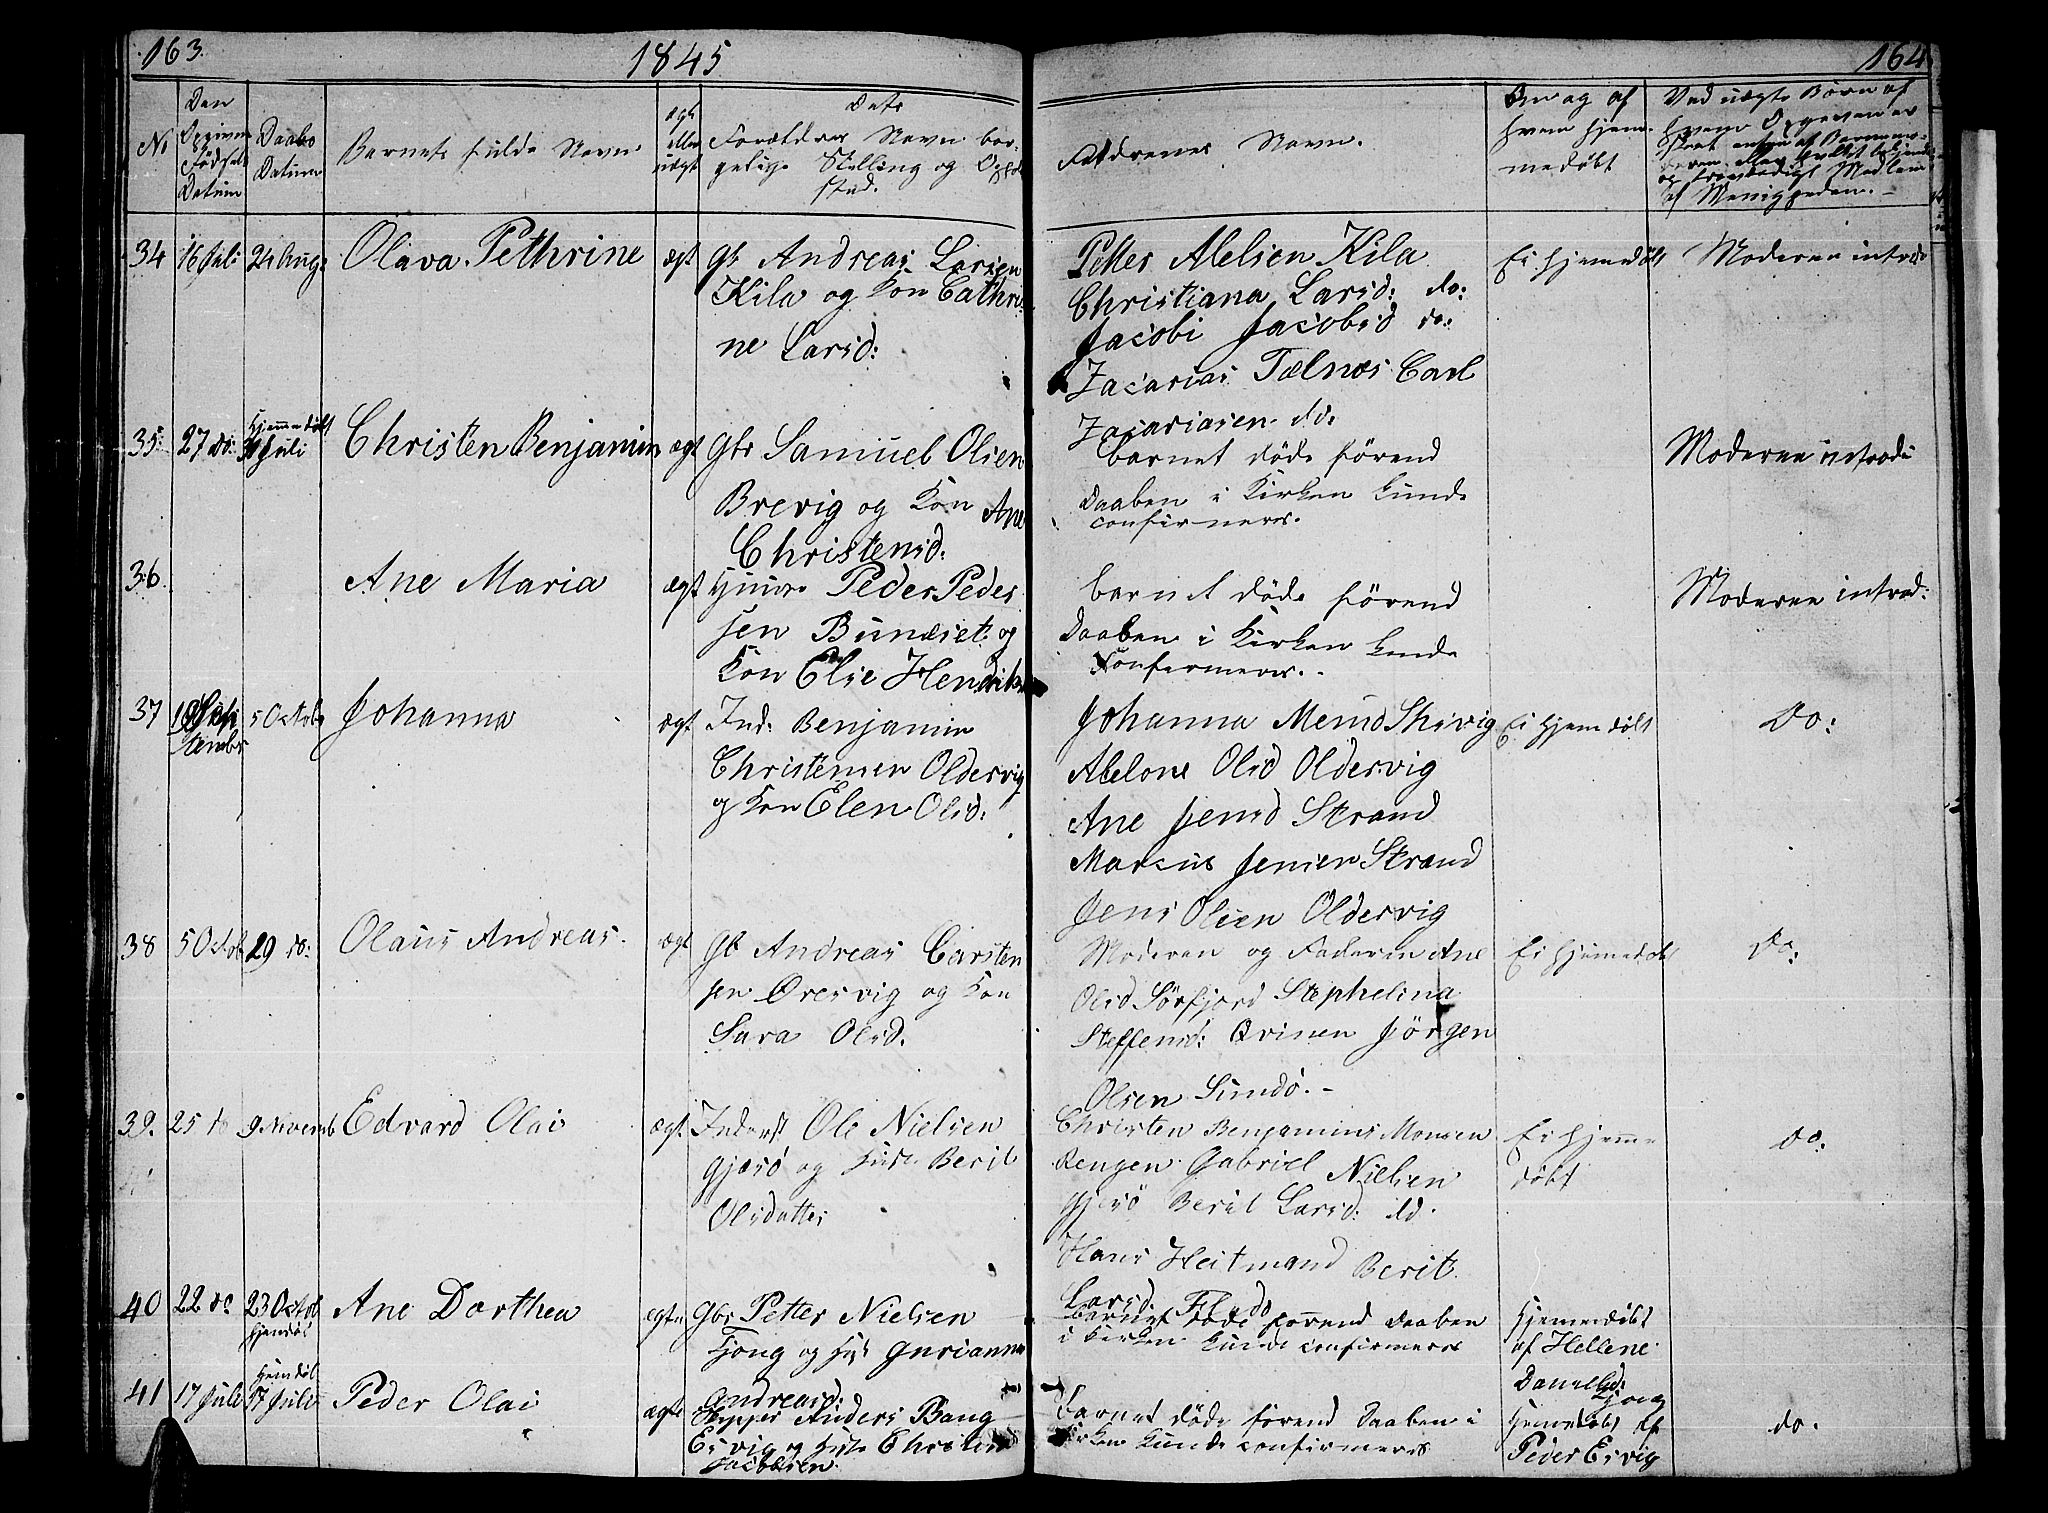 163.
1845
164
No
Den Opgivne Fødsels Datum
Daabs Datum
Barnets fulde Navn
ægte eller uægt
Dets Forældres Navn bor-
gelige Stilling og Opholds
sted.
Faddernes Navn.
Om og af
hvem hjem-
medøbt
Ved uægte Børn af
hvem Opgaven er
af Menigheden. –
34 16 Juli 24 Aug: Olava Pethrine ægt Gb Andreas Larsen
Kila og Kon Cathri-
ne Larsd:
Petter Abelsen Kila
Christiana Larsd: do:
Jacobi Jacobsd do:
Zacarias Tælnæs Carl
Zacariasen do.
Ei hjemedøbt
Moderen introd
35: 27 do: Hjemmedøbt
Juli Christen Benjamin ægt Gbr Samuel Olsen
Brevig og Kon Ane
Christensd:
barnet døde førend
Daaben i Kirken kunde
confirmeres.
Moderen introd:
36. Ane Maria ægt Huusm Peder Peder
sen Bundset og
Kon Elie Hendrik
barnet døde førend
Daaben i Kirken kunde
Confermeres. -
Moderen introd:
37 Sep-
tembr 5 Octob Johanna ægt Ind: Benjamin
Christensen Oldervig
og Kon Elen Olsd:
Johanna Monsd Skivig
Abelone Olsd Oldervig
Ane Jensd Strand
Marcus Jensen Strand
Jens Olsen Oldervig
Ei hjemdøbt
Do:
38 5 Octob 29 do: Olaus Andreas. ægt Gb Andreas Carsten
sen Øresvig og Kon
Sara Olsd.
Moderen og Faderen Ane
Olsd Sørfjord Stephelina
Steffensd: Qvinen Jørgen
Olsen Sundø. -
Ei hjemedøbt
Do:
39. 25 do 9 Novemb Edvard Olai ægt. Inderst Ole Nielsen
Gjæsø og Hust. Berit
Olsdatter
Christen Benjamins Monsen
Rengen Gabriel Nielsen
Gjesø Berit Larsd: do.
Hans Heitmand Berit
Larsd.
Ei hjemme
døbt
do:
40 22 do 23 Octob
Hjemdøb Ane Dorthea ægte Gbr Petter Nielsen
Tjong og Hust Gurianna
Andreasd:
barnet døde førend Daaben
i Kirken kunde confirmeres
Hjemedøbt
af Hellene
Danielsd:
Tjong
41 17 Juli Hjemdøb
17 Juli Peder Olai ægte Skipper Anders Bang
Esvig og Hust Christen
Jacobsen.
Barnet døde førend Daaben i
Kirken kunde confirmeres
Hjemedøbt af
Peder Esvig
do.